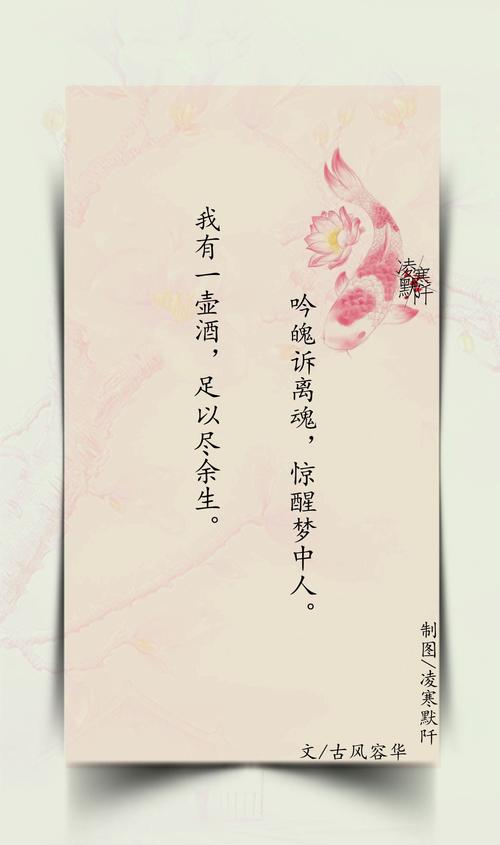 我有一壶酒，足以尽余生。
吟魄诉离魂，惊醒梦中人。
凌寒
默阡
制图/凌寒默阡
文/古风容华